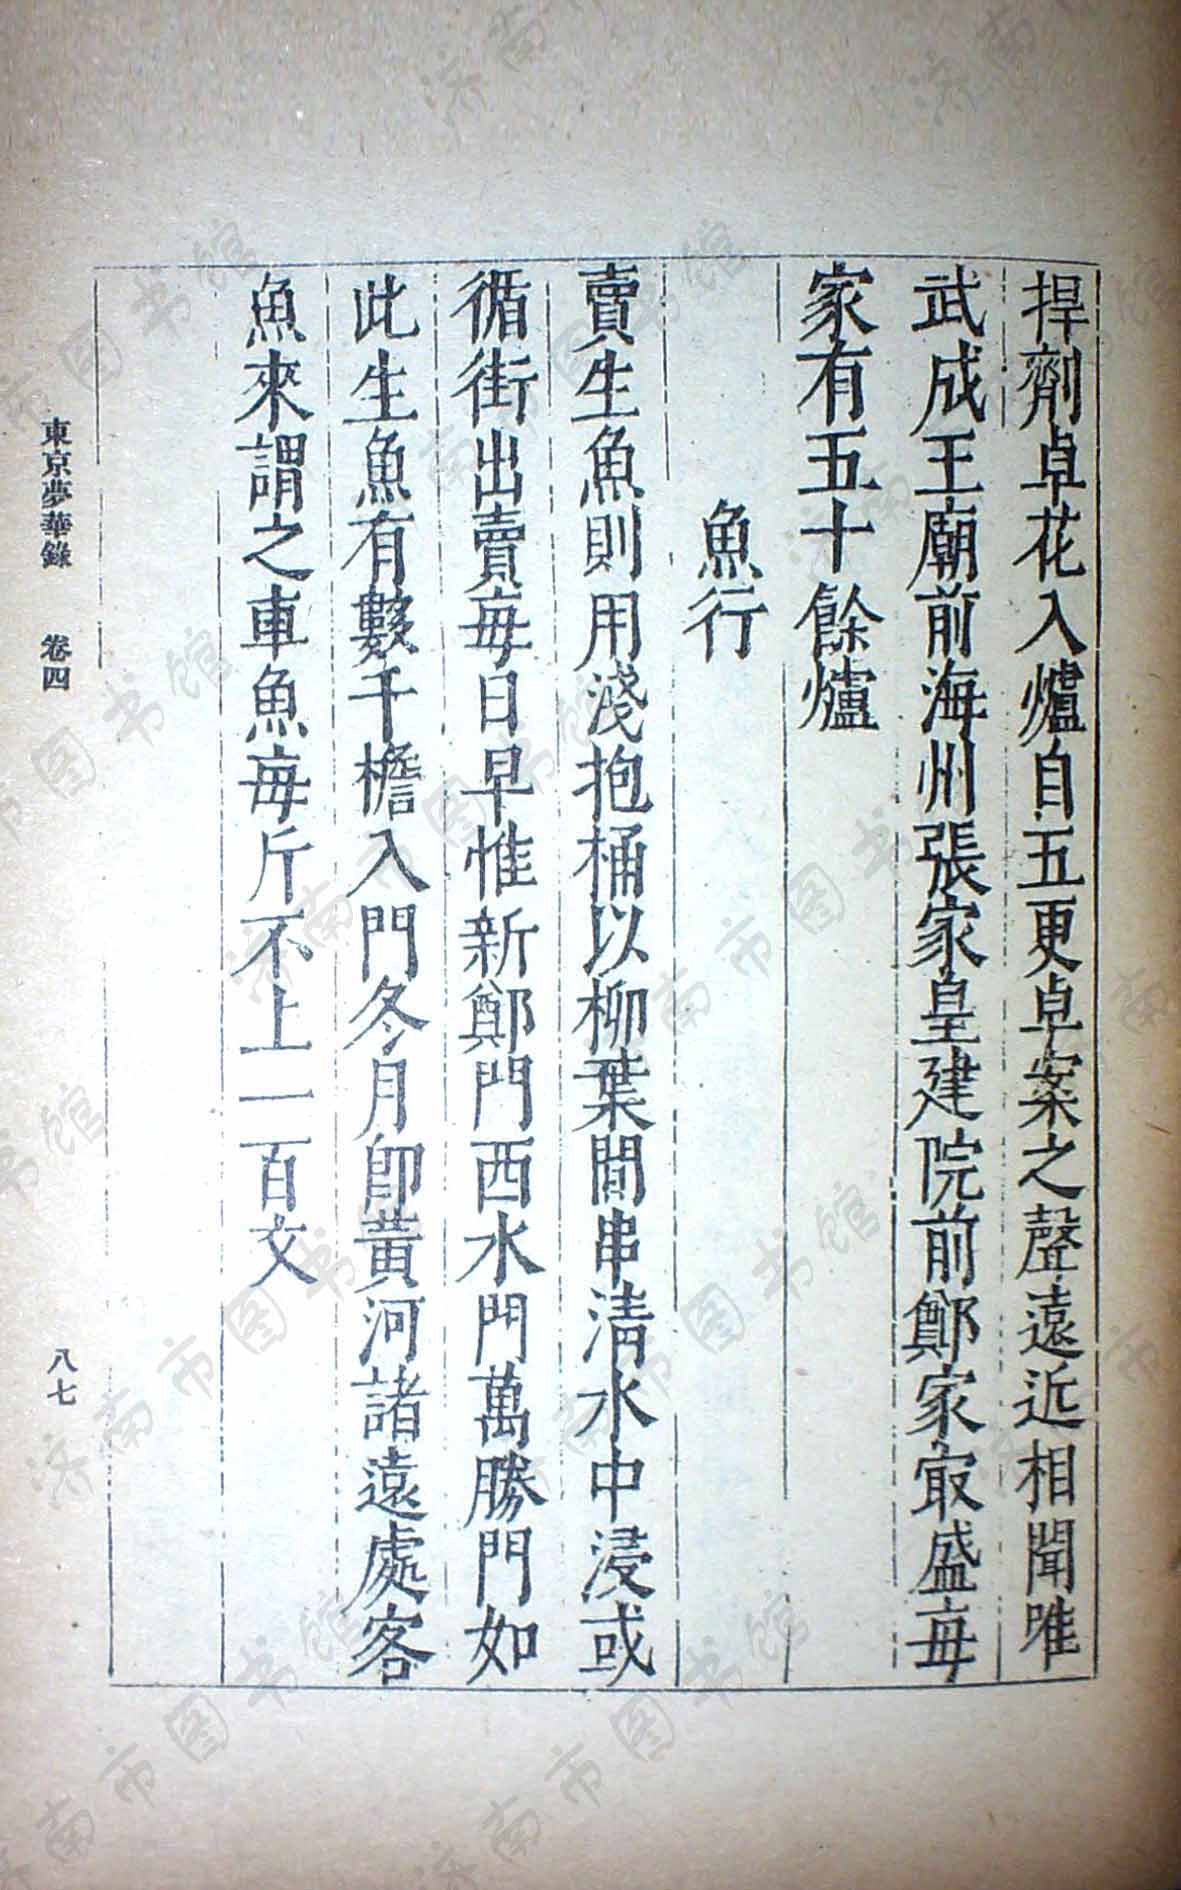 捍劑卓花入爐自五更卓案之聲遠近相聞唯
武成王廟前海州張家皇建院前鄭家㝡盛每
家有五十餘爐
魚行
賣生魚則用淺抱桶以柳葉間串清水中浸或
循街出賣每日早惟新鄭門西水門萬勝門如
此生魚有數千檐入門冬月即黃河諸遠處客
魚來謂之車魚每斤不上一百文
東京夢華錄 卷四
八七
济南市图书馆